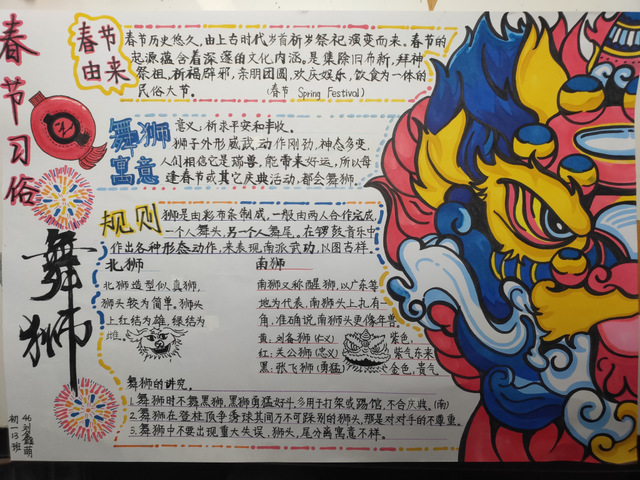 春节习俗
舞狮
春节由来
春节历史悠久,由上古时代岁首祈岁祭祀演变而来。春节的
起源蕴含着深邃的文化内涵。是集除旧布新,拜神
祭祖,祈福辟邪,亲朋团圆,欢庆娱乐,饮食为一体的
民俗大节。 (春节 Spring Festival)
舞狮寓意
意义,祈求平安和丰收。
狮子外形威武,动作刚劲,神态多变。
人们相信它是瑞兽,能带来好运,所以每
逢春节或其它庆典活动,都会舞狮。
规则
狮是由彩布条制成,一般由两人合作完成,
一个人舞头,另一个人舞尾。在锣鼓音乐中
作出各种形态动作,来表现南派武功,以图吉祥。
北狮
北狮造型似真狮,
狮头较为简单。狮头
上红结为雄,绿结为
雌。
南狮
南狮又称醒狮,以广东等
地为代表,南狮头上丸有一
角,准确说,南狮头更像年兽。
黄:刘备狮(仁义) 紫色,
红:关公狮(忠义) 紫气东来
黑:张飞狮(勇猛) 金色,贵气
舞狮的讲究
1.舞狮时不舞黑狮,黑狮勇猛好斗,多用于打架或踢馆,不合庆典。(南)
2.舞狮在登桩顶争夺绣球其间万不可踩别的狮头,那是对对手的不尊重。
3.舞狮中不要出现重大失误,狮头,尾分离寓意不祥。
初一13班
46刘鑫萌